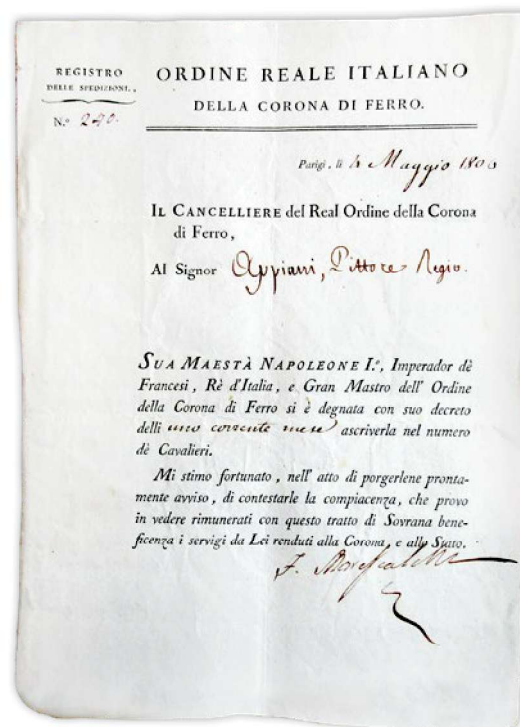 REGISTRO
DELLE SPEDIZIONI.
N.º 240.
ORDINE REALE ITALIANO
DELLA CORONA DI FERRO.
Parigi, li 4 Maggio
IL CANCELLIERE del Real Ordine della Corona
di Ferro,
Al Signor Appiani, Pittore Regio.
SUA MAESTÀ NAPOLEONE I.º, Imperador dè
Francesi, Rè d'Italia, e Gran Mastro dell' Ordine
della Corona di Ferro si è degnata con suo decreto
delli uno corrente mese ascriverla nel numero
dè Cavalieri.
Mi stimo fortunato, nell' atto di porgerlene pronta-
mente avviso, di contestarle la compiacenza, che provo
in vedere rimunerati con questo tratto di Sovrana bene-
ficenza i servigi da Lei renduti alla Corona, e allo Stato.
F. Marescalchi